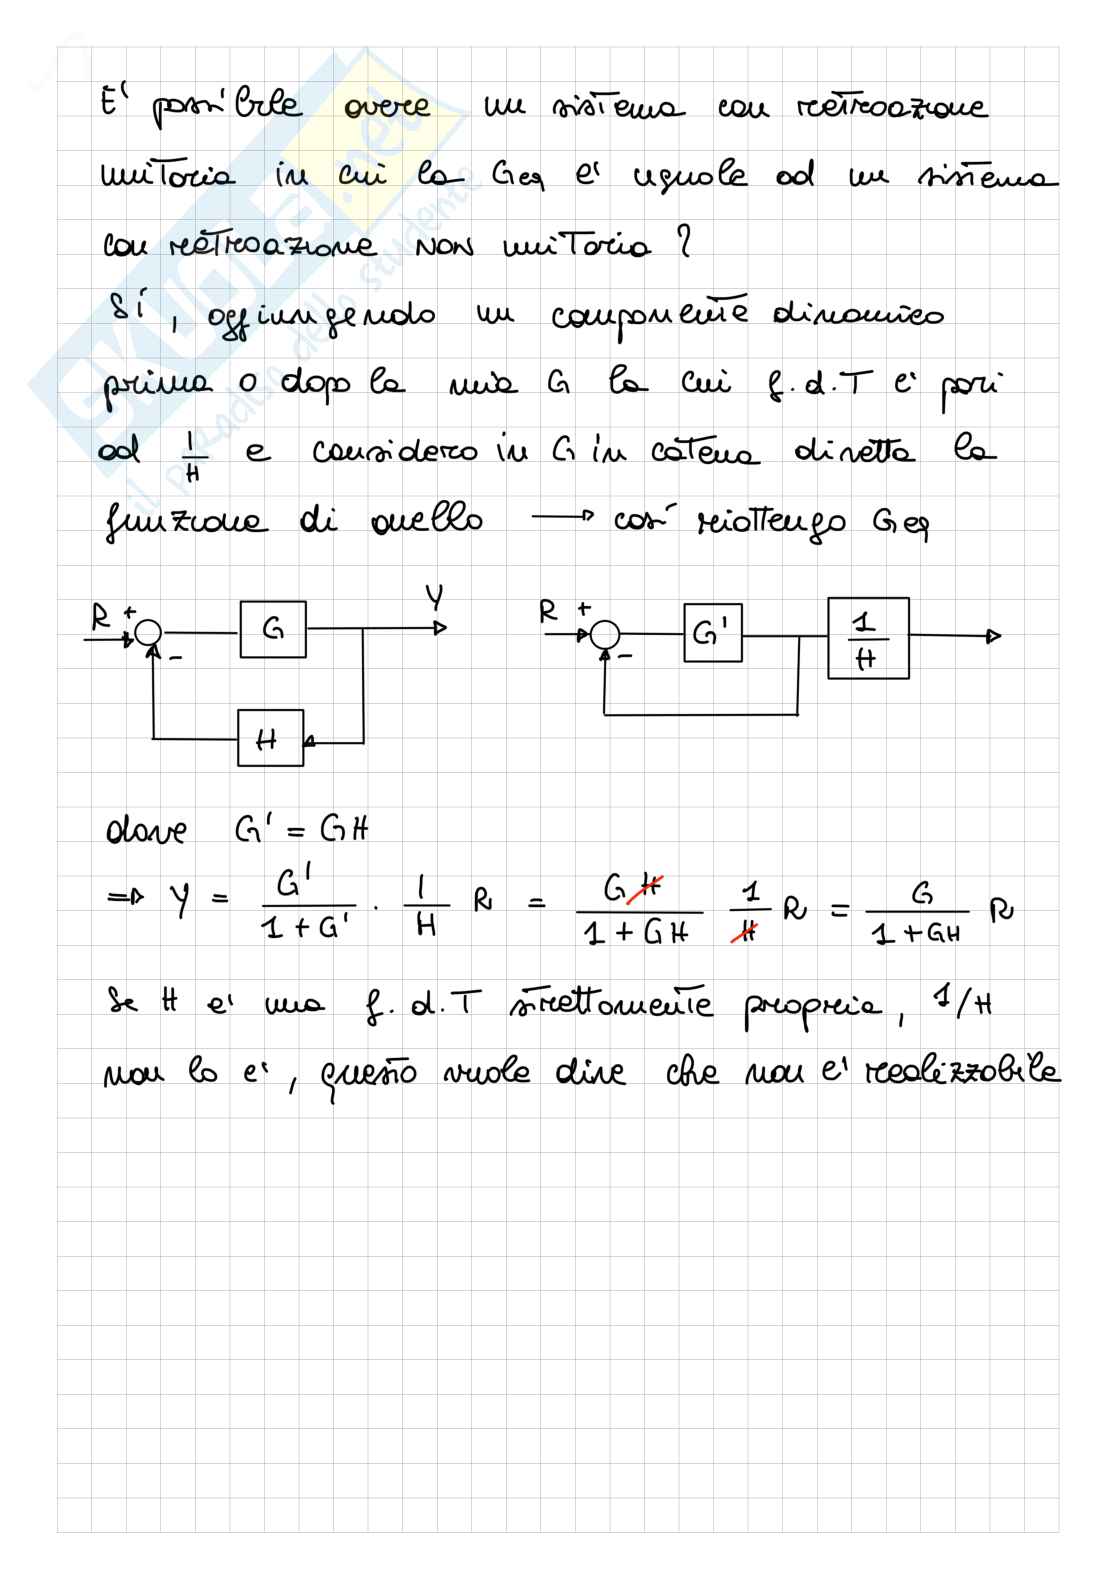 E' possibile avere un sistema con retroazione
unitaria in cui la Geq e' uguale ad un sistema
con retroazione NON unitaria ?
Sí, aggiungendo un componente dinamico
prima o dopo la mia G la cui f.d.T e' pari
ad 1/H e considero in G in catena diretta la
funzione di anello → cosí riottengo Geq
R + - G Y H
R + - G' 1/H
dove G' = GH
⇒ Y = G'/(1 + G') · 1/H R = GH/(1 + GH) 1/H R = G/(1 + GH) R
Se H e' una f.d.T strettamente propria, 1/H
non lo e', questo vuole dire che non e' realizzabile
SKUOLA.net
il paradiso dello studente